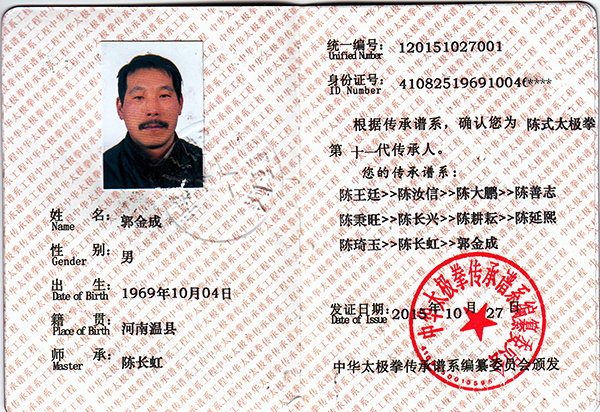 姓 名： 郭金成
Name
性 别： 男
Gender
出 生： 1969年10月04日
Date of Birth
籍 贯： 河南温县
Place of Birth
师 承： 陈长虹
Master
统一编号： 120151027001
Unified Number
身份证号： 41082519691004****
ID Number
根据传承谱系，确认您为 陈式太极拳
第 十一代传承人。
您的传承谱系：
陈王廷>>陈汝信>>陈大鹏>>陈善志
陈秉旺>>陈长兴>>陈耕耘>>陈延熙
陈琦玉>>陈长虹>>郭金成
发证日期： 2015年 10 月 27 日
Date of Issue
中华太极拳传承谱系编纂委员会
中华太极拳传承谱系编纂委员会颁发
中华太极拳传承谱系工程